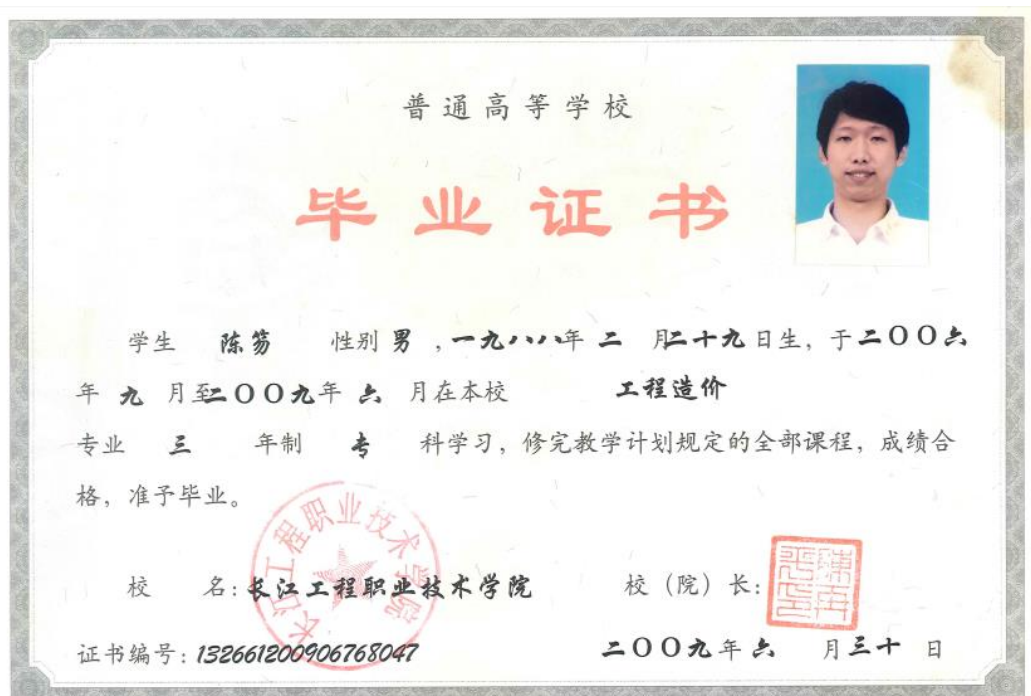 普通高等学校
毕业证书
学生 陈笏 性别 男 ，一九八八年 二 月二十九日生，于二〇〇六
年 九 月至二〇〇九年 六 月在本校 工程造价
专业 三 年制 专 科学习，修完教学计划规定的全部课程，成绩合
格，准予毕业。
长江工程职业技术学院
校 名：长江工程职业技术学院 校（院）长：
证书编号：132661200906768047 二〇〇九年六 月三十 日